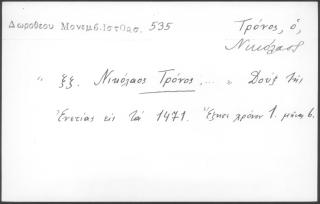 Δωροθέου Μονεμβ. Ιστ. 535
Τρόνος, ὁ,
Νικόλαος
" ξξ. Νικόλαος Τρόνος, ... " Δούξ τῆς
Ἐνετίας εἰς τὰ 1471. Ἔζησε χρόνον 1. μῆνας 6.